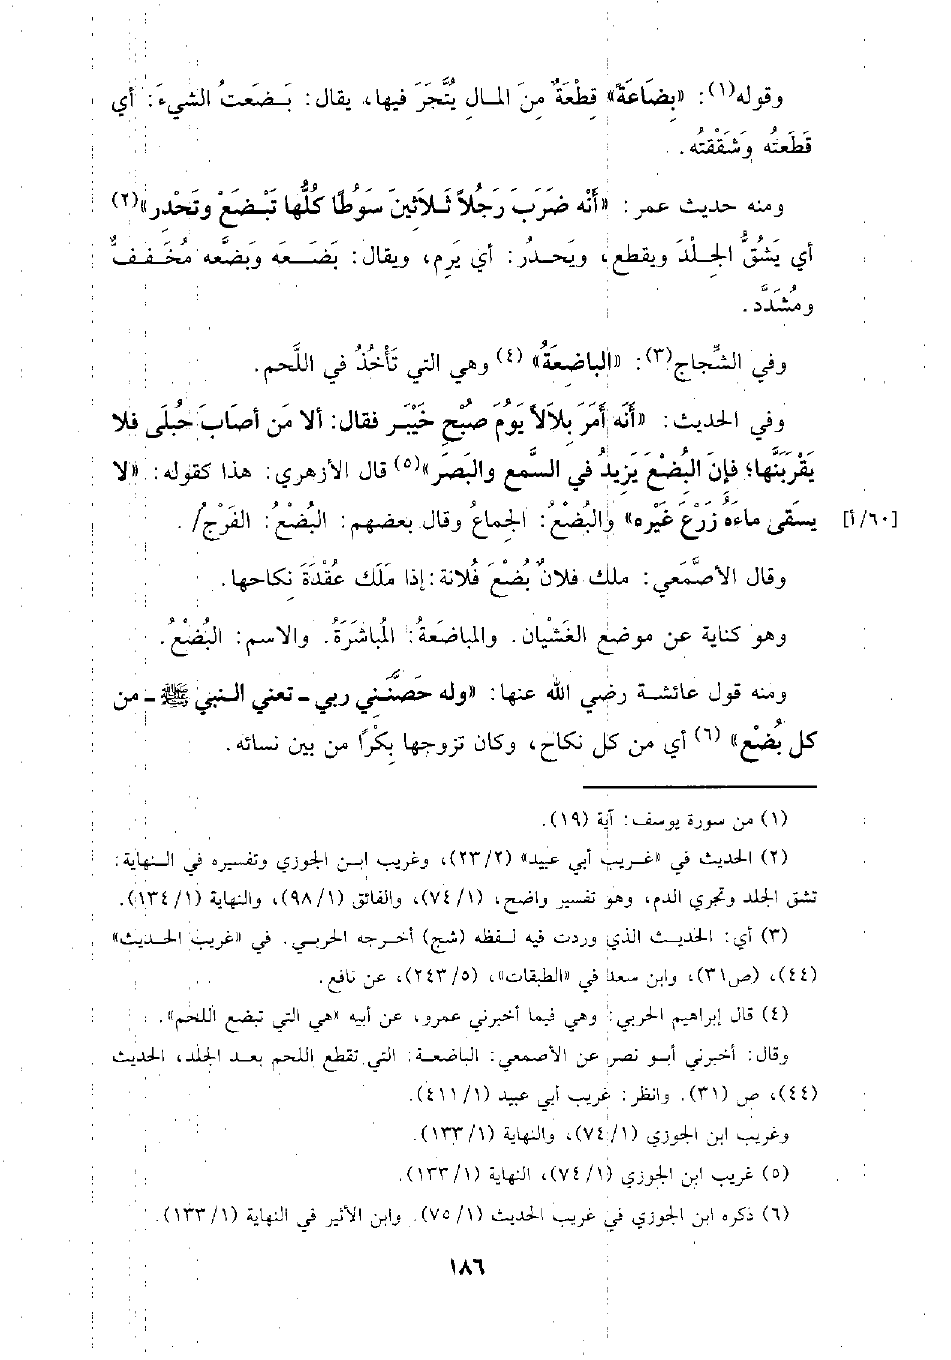 وقوله(١): «بِضَاعَةً» قِطْعَةٌ مِنَ المَالِ يُتَّجَرَ فيها، يقال: بَضَعتُ الشيءَ: أي
قَطَعتُه وَشَقَقتُه.
ومنه حديث عمر: «أَنَّه ضَرَبَ رَجُلاً ثَلاثينَ سَوطًا كُلُّها تَبْضَعْ وتَحْدر»(٢)
أي يَشُقُّ الجِلْدَ ويقطع، ويَحدُر: أي يَرِم، ويقال: بَضَعَه وبَضَّعه مُخَففٌ
ومُشَدَّد.
وفي الشِّجاج(٣): «الباضعَةُ»(٤) وهي التي تَأْخُذُ في اللَّحم.
وفي الحديث: «أنَّه أَمَرَ بِلاَلاً يَوُمَ صبُحِ خَيْبَر فقال: ألا مَن أصَابَ حُبلَى فلا
يَقْرَبَنَّها؛ فإنَ البُضْعَ يَزِيدُ في السَّمعِ والبَصَر»(٥) قال الأزهري: هذا كقوله: «لا
يسقَى ماءَهُ زَرْعَ غَيْرِه» والبُضْعُ: الجماعُ وقال بعضهم: البُضْعُ: الفَرْجُ/. [٦٠/أ]
وقال الأصْمَعي: ملك فلانٌ بُضْعَ فُلانة: إذا مَلَك عُقْدَةَ نِكاحها.
وهو كناية عن موضع الغَشْيان. والمباضَعَةُ: المُباشَرَةُ. والاسم: البُضْعُ.
ومنه قول عائشة رضي الله عنها: «وله حَصَّنَني ربي ـ تعني النبي ﷺ ـ من
كل بُضْع»(٦) أي من كل نكاح، وكان تزوجها بِكْرًا من بين نسائه.
(١) من سورة يوسف: آية (١٩).
(٢) الحديث في «غريب أبي عبيد» (٢٣/٢)، وغريب ابن الجوزي وتفسيره في النهاية:
تشق الجلد وتجري الدم، وهو تفسير واضح، (٧٤/١)، والفائق (٩٨/١)، والنهاية (١٣٤/١).
(٣) أي: الحديث الذي وردت فيه لفظه (شج) أخرجه الحربي. في «غريب الحديث»
(٤٤)، (ص٣١)، وابن سعد في «الطبقات»، (٢٤٣/٥)، عن نافع.
(٤) قال إبراهيم الحربي: وهي فيما أخبرني عمرو، عن أبيه «هي التي تبضع اللحم».
وقال: أخبرني أبو نصر عن الأصمعي: الباضعة: التي تقطع اللحم بعد الجلد، الحديث
(٤٤)، ص (٣١). وانظر: غريب أبي عبيد (٤١١/١).
وغريب ابن الجوزي (٧٤/١)، والنهاية (١٣٣/١).
(٥) غريب ابن الجوزي (٧٤/١)، النهاية (١٣٣/١).
(٦) ذكره ابن الجوزي في غريب الحديث (٧٥/١). وابن الأثير في النهاية (١٣٣/١).
١٨٦